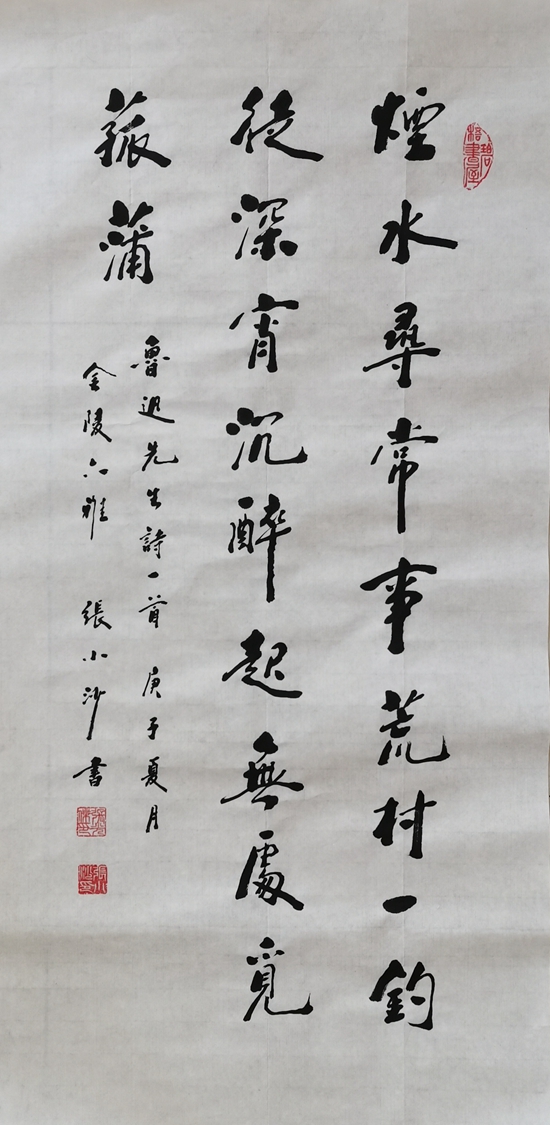 煙水尋常事荒村一釣
徒深宵沉醉起無處覓
菰蒲
魯迅先生詩一首 庚子夏月
金陵六雅 張小沙書